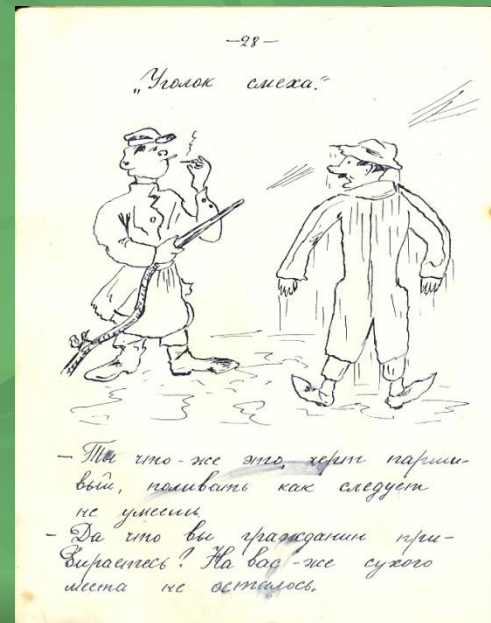 —28—
„Уголок смеха."
— Ты что-же это, черт парши-
вый, поливать как следует
не умеешь.
— Да что вы гражданин при-
дираетесь? На вас-же сухого
места не осталось.